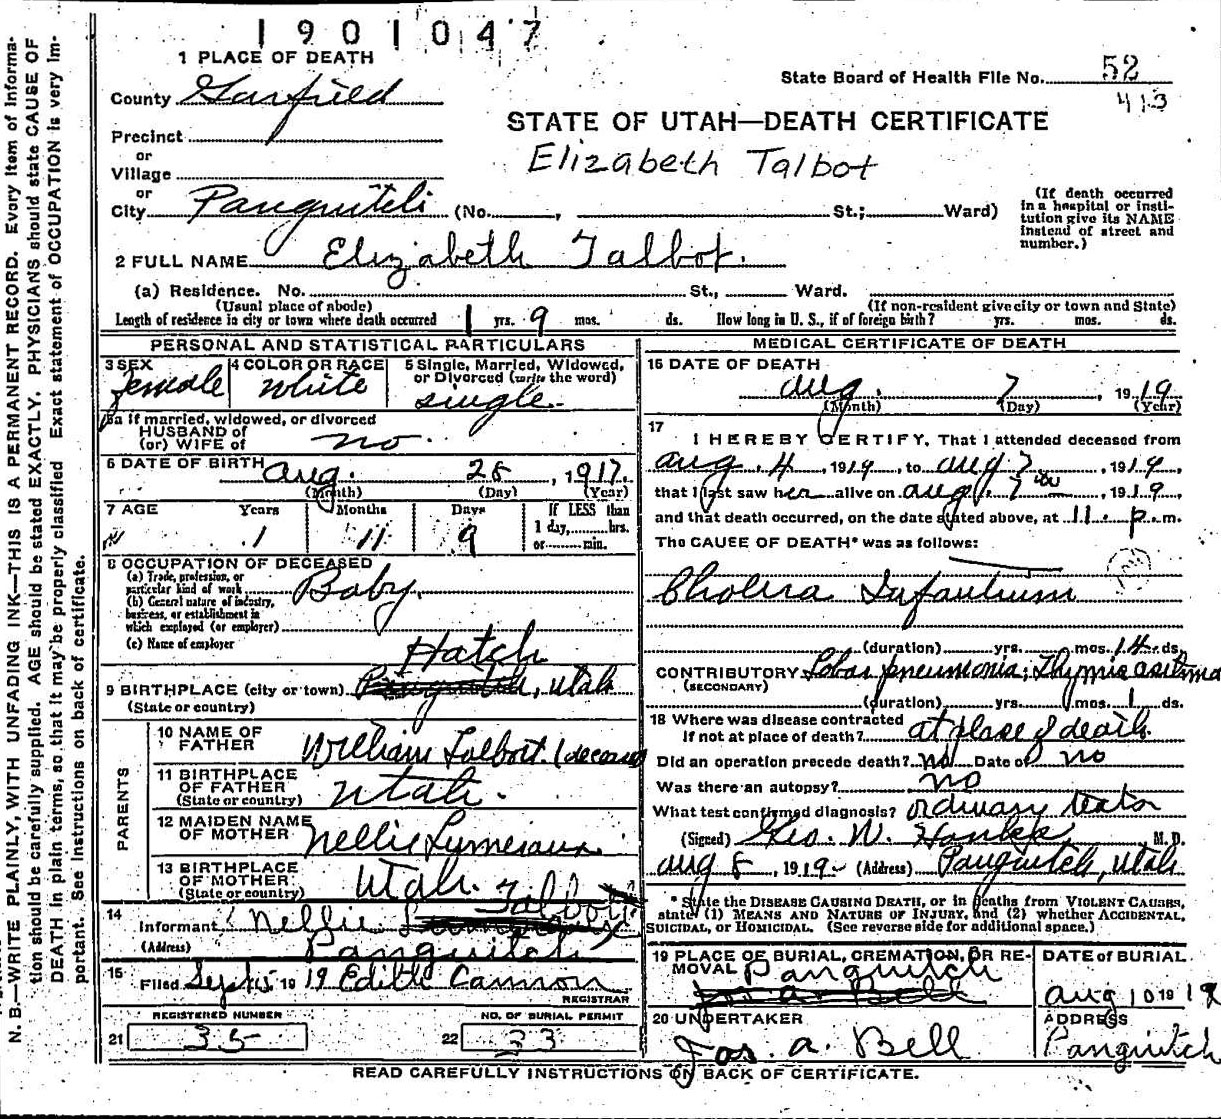 1901047
1 PLACE OF DEATH
State Board of Health File No. 52
413
County Garfield
STATE OF UTAH—DEATH CERTIFICATE
Elizabeth Talbot
Precinct
or
Village
or
City Panguitch (No. , St.; Ward)
(If death occurred in a hospital or institution give its NAME instead of street and number.)
2 FULL NAME Elizabeth Talbot.
(a) Residence. No. St., Ward.
(Usual place of abode) (If non-resident give city or town and State)
Length of residence in city or town where death occurred 1 yrs. 9 mos. ds. How long in U. S., if of foreign birth? yrs. mos. ds.
PERSONAL AND STATISTICAL PARTICULARS
3 SEX female
4 COLOR OR RACE white
5 Single, Married, Widowed, or Divorced (write the word) single.
5a If married, widowed, or divorced
HUSBAND of
(or) WIFE of no.
6 DATE OF BIRTH Aug. 28, 1917.
(Month) (Day) (Year)
7 AGE Years Months Days If LESS than
1 11 9 1 day, hrs.
or min.
8 OCCUPATION OF DECEASED
(a) Trade, profession, or particular kind of work Baby.
(b) General nature of industry, business, or establishment in which employed (or employer)
(c) Name of employer
Hatch
9 BIRTHPLACE (city or town) Panguitch, Utah
(State or country)
PARENTS
10 NAME OF FATHER William Talbot. (deceased
11 BIRTHPLACE OF FATHER Utah.
(State or country)
12 MAIDEN NAME OF MOTHER Nellie
13 BIRTHPLACE OF MOTHER Utah.
(State or country)
14 Talbott
Informant Nellie
(Address) Panguitch
15 Filed Sept 5 1919 Edith Cannon
REGISTRAR
REGISTERED NUMBER NO. OF BURIAL PERMIT
21 35 22 33
MEDICAL CERTIFICATE OF DEATH
16 DATE OF DEATH
Aug. 7 1919
(Month) (Day) (Year)
17
I HEREBY CERTIFY, That I attended deceased from
Aug. 4, 1919, to Aug 7, 1919,
that I last saw her alive on Aug. 7, 1919,
and that death occurred, on the date stated above, at 11. p. m.
The CAUSE OF DEATH* was as follows:
Cholera Infantum
(duration) yrs. mos. 14 ds.
CONTRIBUTORY Lobar pneumonia; Thymic asthma
(SECONDARY)
(duration) yrs. mos. 1 ds.
18 Where was disease contracted
if not at place of death? at place of death.
Did an operation precede death? no Date of no
Was there an autopsy? no
What test confirmed diagnosis? ordinary
(Signed) Geo. W. M.D.
Aug 8, 1919 (Address) Panguitch, Utah
* State the DISEASE CAUSING DEATH, or in deaths from VIOLENT CAUSES,
state (1) MEANS AND NATURE OF INJURY, and (2) whether ACCIDENTAL,
SUICIDAL, or HOMICIDAL. (See reverse side for additional space.)
19 PLACE OF BURIAL, CREMATION, OR REMOVAL Panguitch
Jos. a. Bell
DATE of BURIAL
Aug 10 1919
20 UNDERTAKER
Jos. a. Bell
ADDRESS
Panguitch
READ CAREFULLY INSTRUCTIONS ON BACK OF CERTIFICATE.
N. B.—WRITE PLAINLY, WITH UNFADING INK—THIS IS A PERMANENT RECORD. Every item of information should be carefully supplied. AGE should be stated EXACTLY. PHYSICIANS should state CAUSE OF DEATH in plain terms, so that it may be properly classified Exact statement of OCCUPATION is very important. See Instructions on back of certificate.